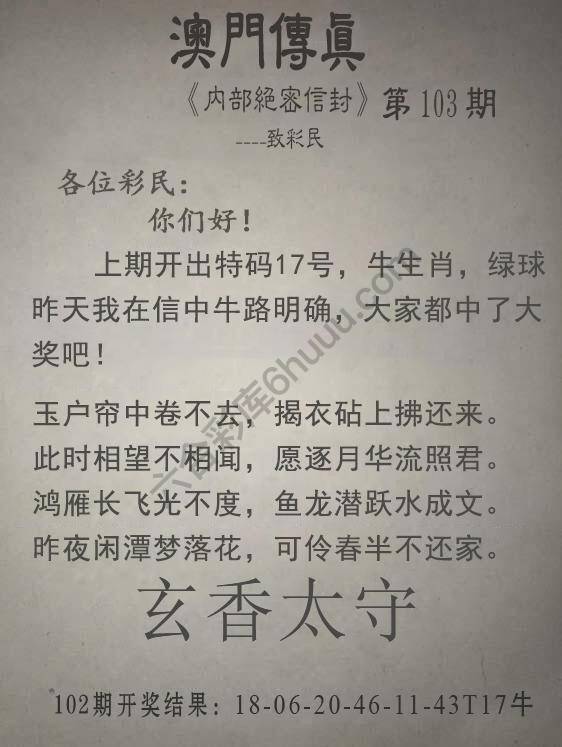 澳門傳眞
《内部絕密信封》第103期
----致彩民
各位彩民：
你们好！
上期开出特码17号，牛生肖，绿球
昨天我在信中牛路明确，大家都中了大
奖吧！
玉户帘中卷不去，揭衣砧上拂还来。
此时相望不相闻，愿逐月华流照君。
鸿雁长飞光不度，鱼龙潜跃水成文。
昨夜闲潭梦落花，可伶春半不还家。
玄香太守
102期开奖结果：18-06-20-46-11-43T17牛
六合彩库6huuu.com